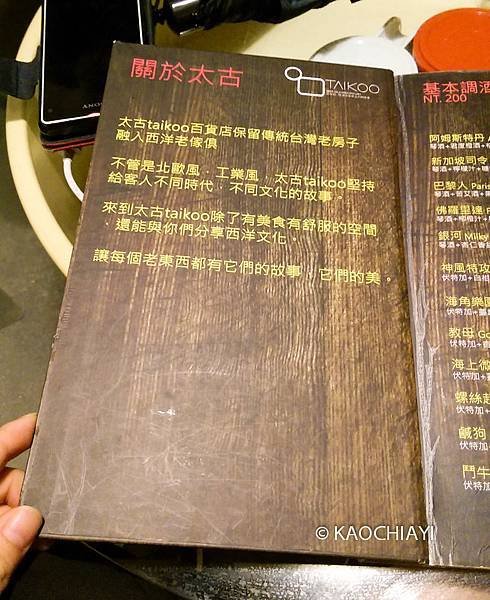 關於太古
TAIKOO
太古taikoo百貨店保留傳統台灣老房子
融入西洋老傢俱
不管是北歐風．工業風，太古taikoo堅持
給客人不同時代，不同文化的故事。
來到太古taikoo除了有美食有舒服的空間
還能與你們分享西洋文化。
讓每個老東西都有它們的故事，它們的美。
基本調酒
NT. 200
阿姆斯特丹
新加坡司令
巴黎人 Paris
佛羅里達
銀河 Milky
神風特攻
海角樂園
教母 Go
伏特加+
海上微
伏特加+
螺絲起
伏特加+
鹹狗
伏特加+
鬥牛
伏特加
SONY
© KAOCHIAYI